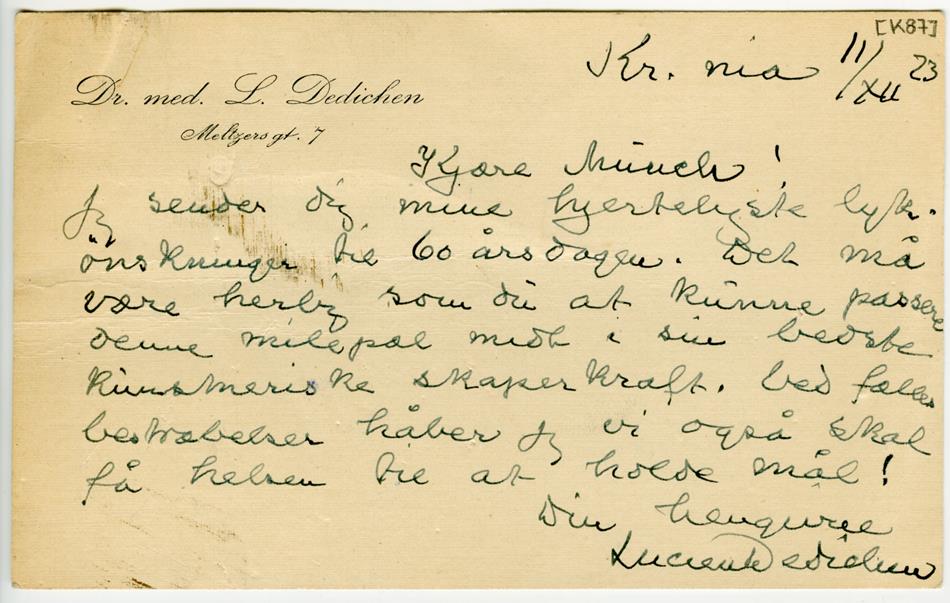 [K87]
Kr. nia 11/XII 23
Dr. med. L. Dedichen
Meltzersgt. 7
Kjære Munch!
Jeg sender dig mine hjerteligste lyk-
önskninger til 60 årsdagen. Det må
være herlig som du at kunne passere
denne milepæl midt i sin bedste
kunstneriske skaperkraft. Ved fælles
bestræbelser håber jeg vi også skal
få helsen til at holde mål!
Din hengivne
Lucien Dedichen